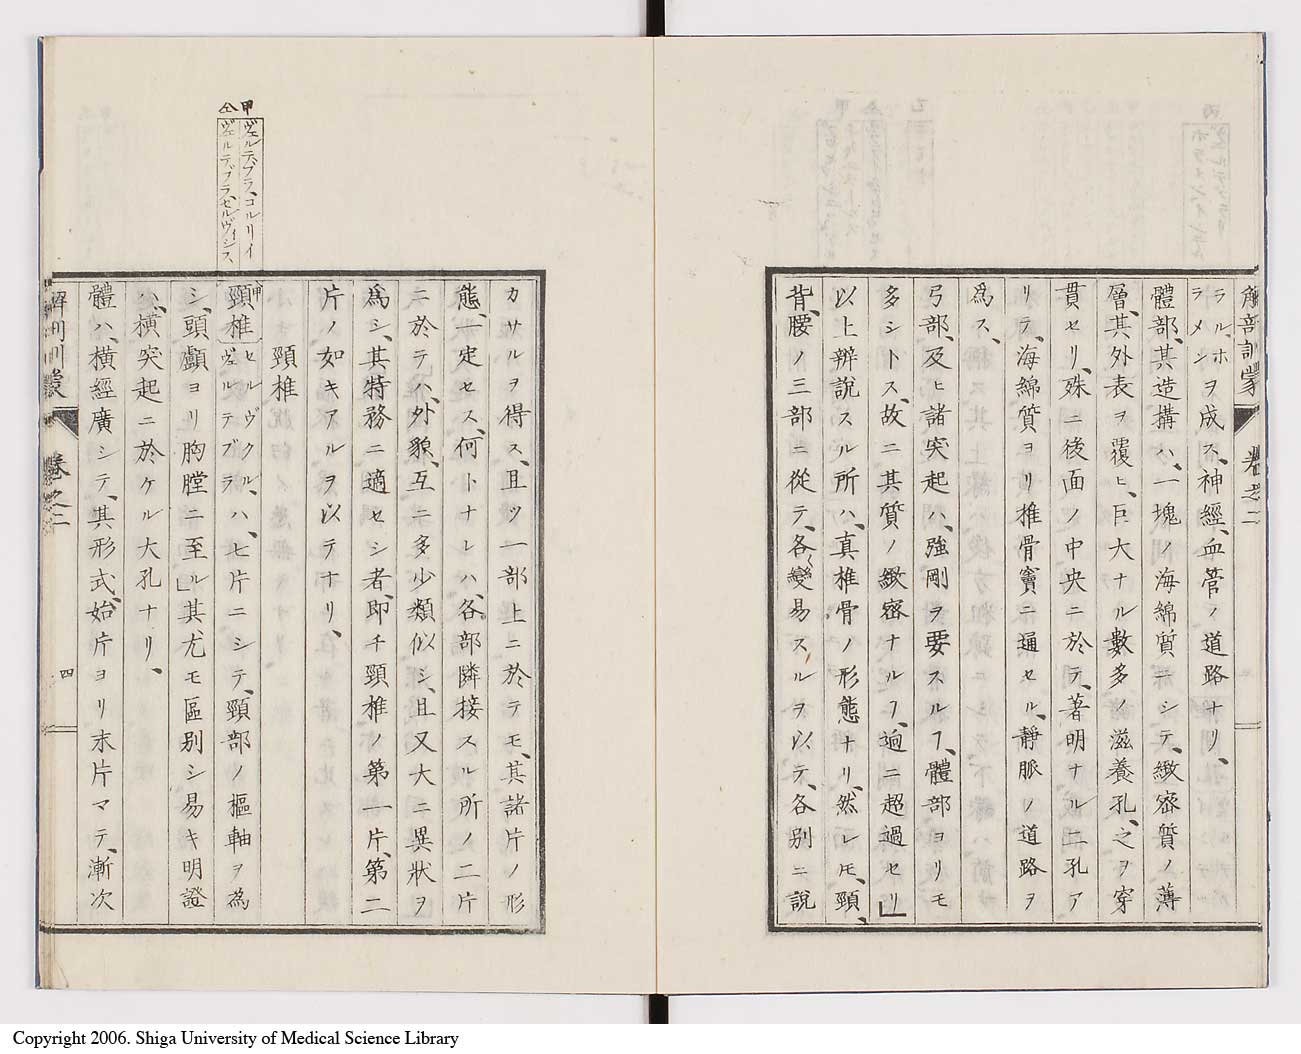 解剖訓蒙 卷之二
ラル、ホ
ラメンヲ成ス、神經、血管ノ道路ナリ、
體部、其造搆ハ、一塊ノ海綿質ニシテ、緻密質ノ薄
層、其外表ヲ覆ヒ、巨大ナル數多ノ滋養孔、之ヲ穿
貫セリ、殊ニ後面ノ中央ニ於テ、著明ナル二孔ア
リテ、海綿質ヨリ椎骨竇ニ通セル、靜脈ノ道路ヲ
為ス、
弓部、及ヒ諸突起ハ、強剛ヲ要スルヿ、體部ヨリモ
多シトス、故ニ其質ノ緻密ナルヿ、逈ニ超過セリ」
以上辨説スル所ハ、真椎骨ノ形態ナリ、然レモ、頸、
背、腰ノ三部ニ從テ、各〻變易スルヲ以テ、各別ニ説
カサルヲ得ス、且ツ一部上ニ於テモ、其諸片ノ形
態、一定セス、何トナレハ、各部隣接スル所ノ二片
ニ於テハ、外貌、互ニ多少類似シ、且又大ニ異狀ヲ
為シ、其特務ニ適セシ者、即チ頸椎ノ第一片、第二
片ノ如キアルヲ以テナリ、
頸椎
甲 ヴェルテブラ、コルリイ
仝 ヴェルテブラ、セルヴィシス
甲頸椎 セルヴクル、ヴェルテブラハ、七片ニシテ、頸部ノ樞軸ヲ為
シ、頭顱ヨリ胸膛ニ至ル」其尤モ區別シ易キ明證
ハ、橫突起ニ於ケル大孔ナリ、
體ハ、橫經廣シテ、其形式、始片ヨリ末片マテ、漸次
解剖訓蒙 卷之二 四
Copyright 2006. Shiga University of Medical Science Library